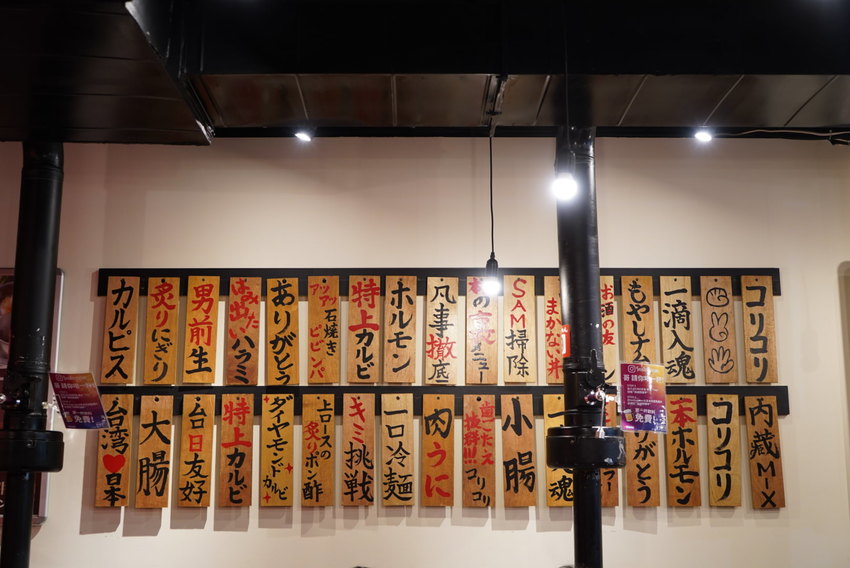 カルピス
炙りにぎり
男前生
はみ出たハラミ
ありがとう
アッアッ石焼きビビンバ
特上カルビ
ホルモン
凡事撤底
SAM掃除
まかない丼
お酒の友
もやしナ
一滴入魂
コリコリ
台湾♥日本
大腸
台日友好
特上カルビ
ダイヤモンドカルビ
上ロースの炙ポン酢
キミ挑戦
一口冷麺
肉うに
歯ごたえ抜群!!!コリコリ
小腸
魂
りがとう
一本ホルモン
コリコリ
内蔵MIX
免費!
免費!